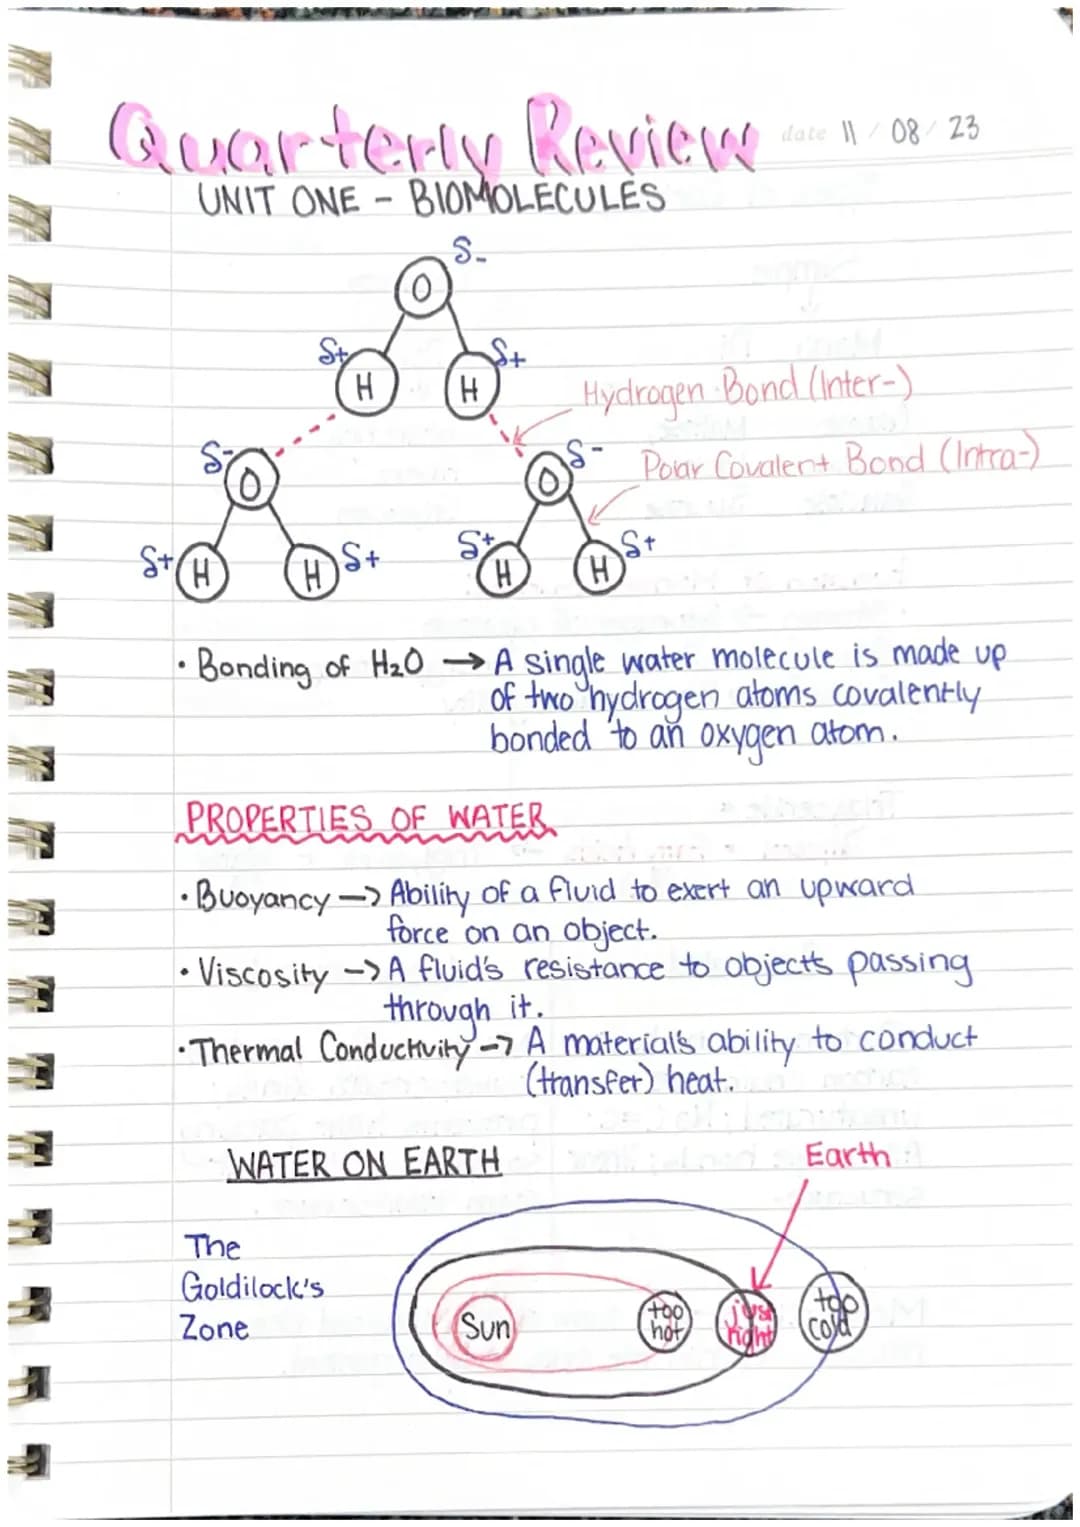 Quarterly Review date 11/08/23
UNIT ONE - BIOMOLECULES
δ-
O
δ+ δ+
H H
Hydrogen Bond (Inter-)
δ- δ-
O O
Polar Covalent Bond (Intra-)
δ+ H H δ+ δ+ H H δ+
• Bonding of H₂O → A single water molecule is made up
of two hydrogen atoms covalently
bonded to an oxygen atom.
PROPERTIES OF WATER
• Buoyancy → Ability of a fluid to exert an upward
force on an object.
• Viscosity → A fluid's resistance to objects passing
through it.
• Thermal Conductivity → A material's ability to conduct
(transfer) heat.
WATER ON EARTH
Earth
The
Goldilock's
Zone
Sun
too
hot
just
right
too
cold